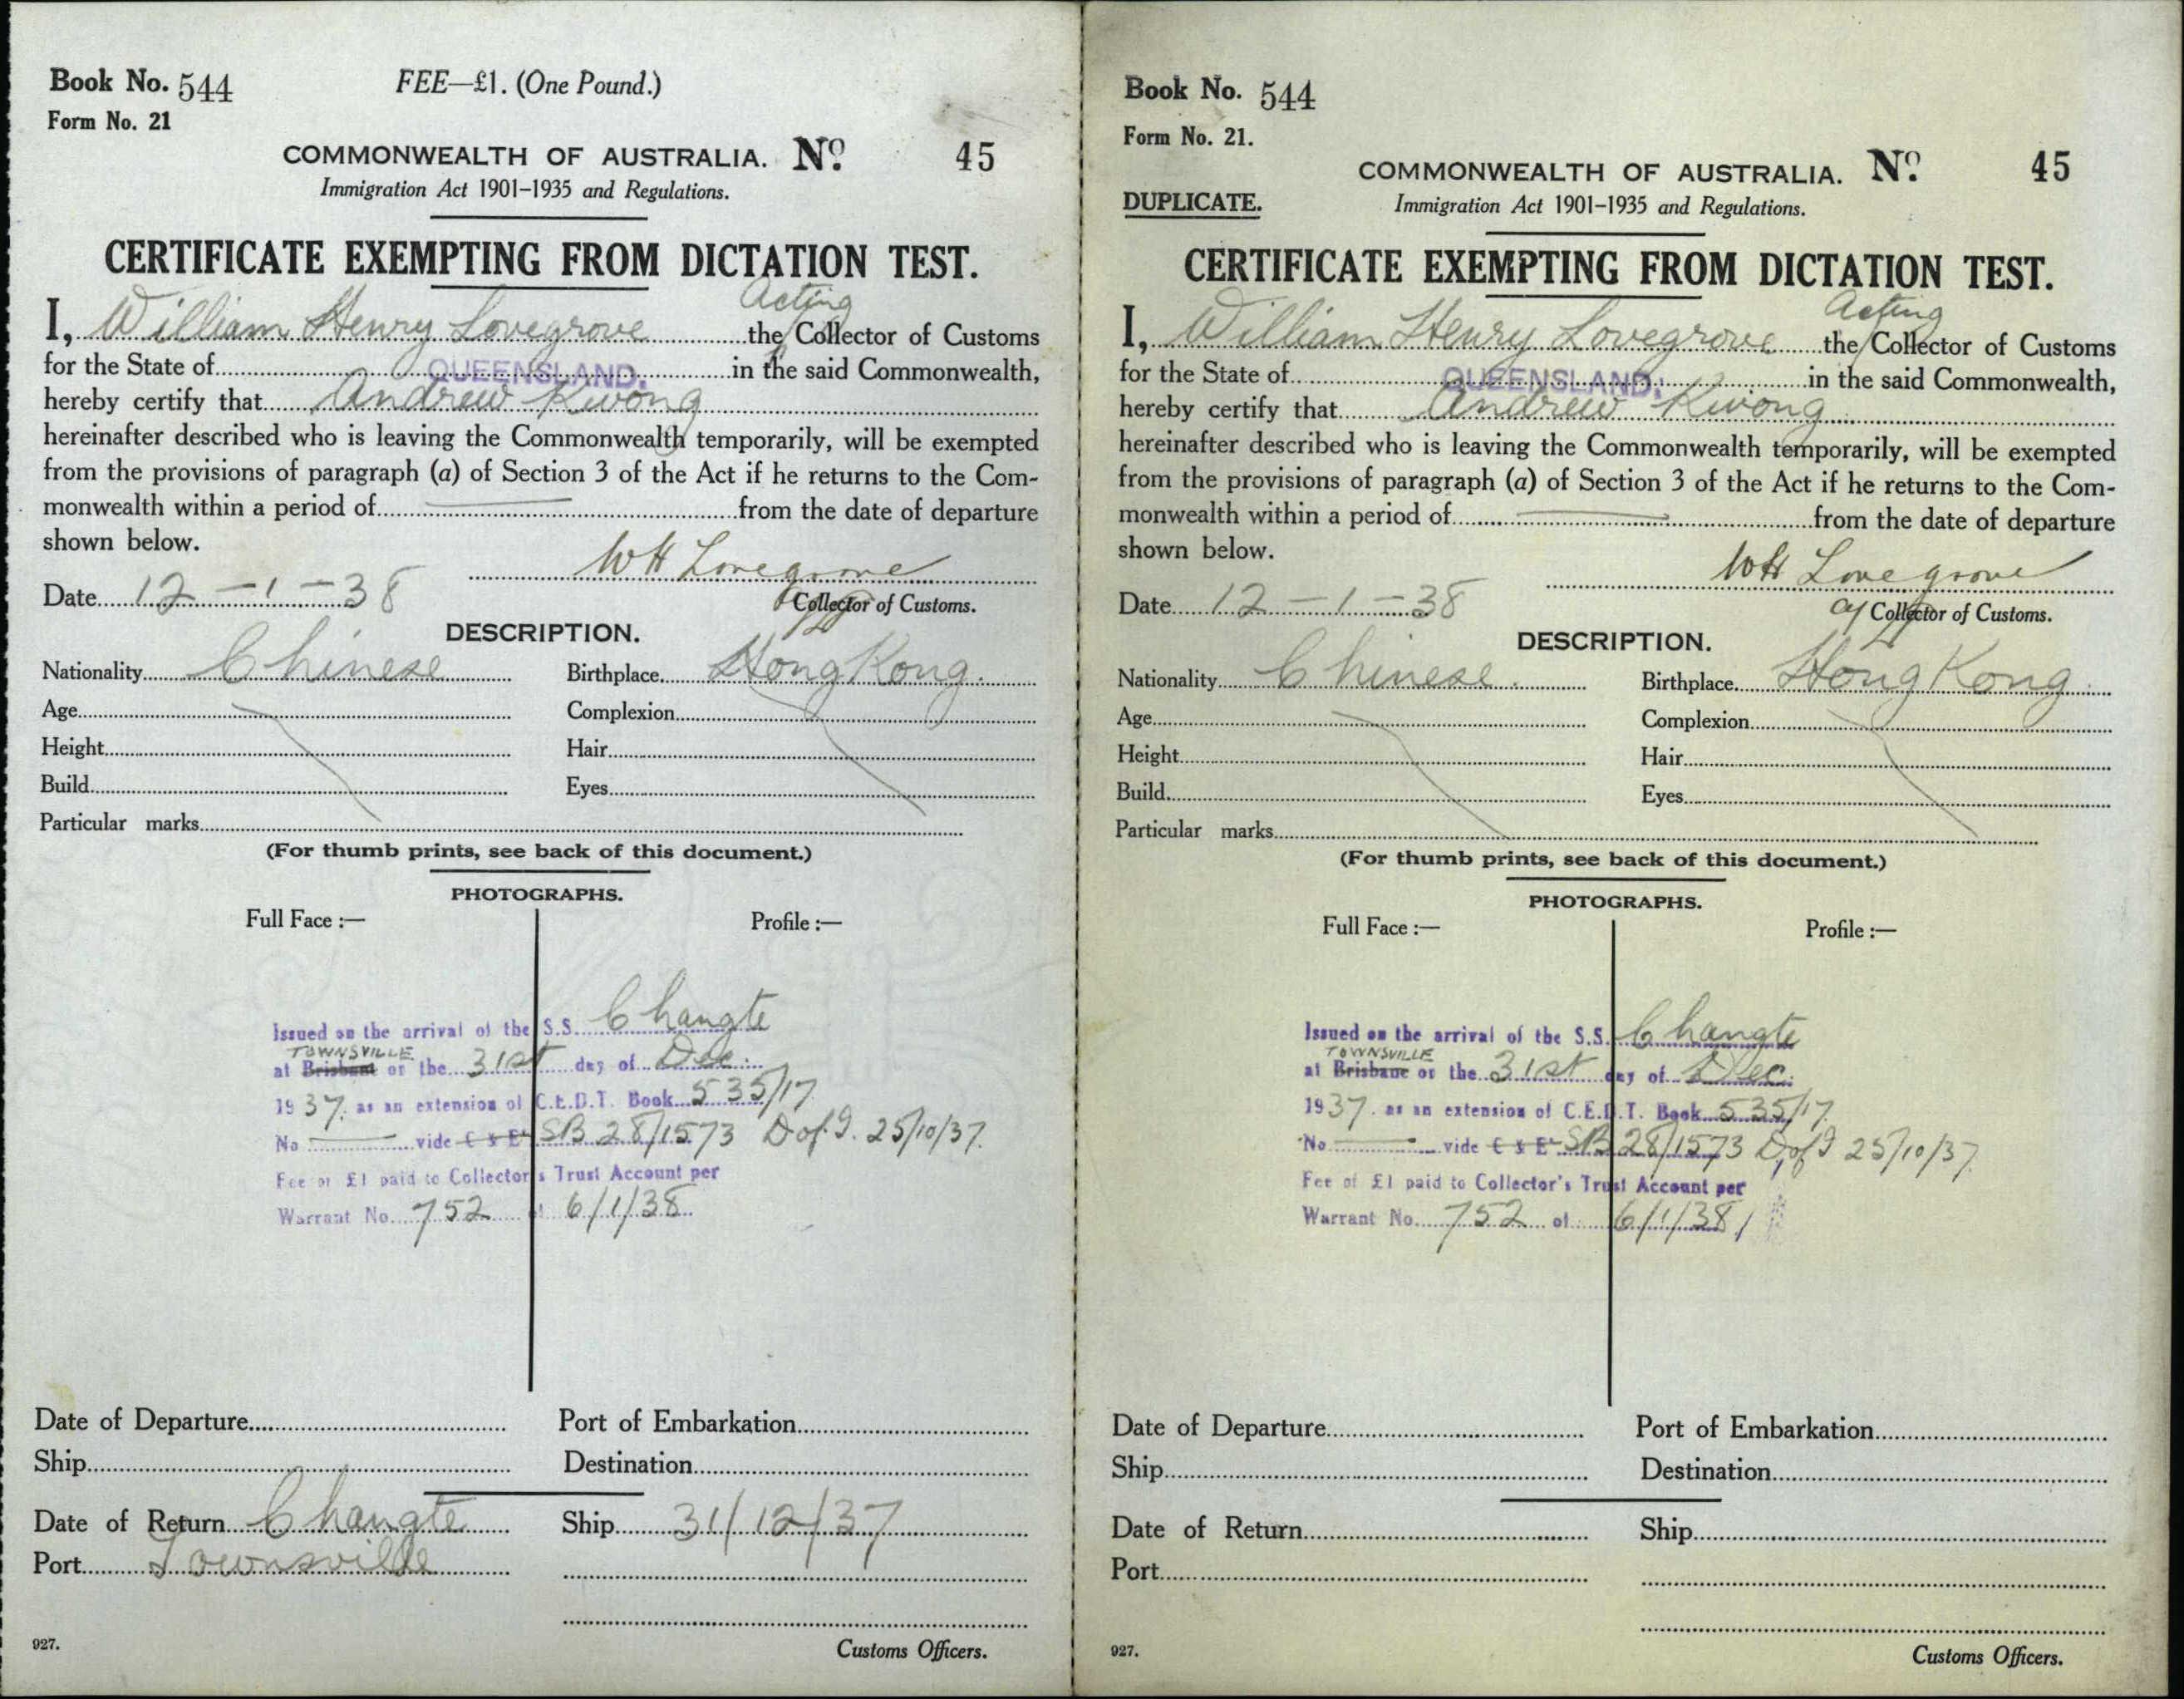 Book No. 544
FEE—£1. (One Pound.)
Form No. 21
COMMONWEALTH OF AUSTRALIA. No. 45
Immigration Act 1901–1935 and Regulations.
CERTIFICATE EXEMPTING FROM DICTATION TEST.
Acting
I, William Henry Lovegrove the/Collector of Customs
for the State of QUEENSLAND. in the said Commonwealth,
hereby certify that Andrew Kwong
hereinafter described who is leaving the Commonwealth temporarily, will be exempted
from the provisions of paragraph (a) of Section 3 of the Act if he returns to the Com-
monwealth within a period of — from the date of departure
shown below.
WH Lovegrove
Date 12 – 1 – 38
Collector of Customs.
DESCRIPTION.
Nationality Chinese Birthplace Hong Kong.
Age Complexion
Height Hair
Build Eyes
Particular marks
(For thumb prints, see back of this document.)
PHOTOGRAPHS.
Full Face :— Profile :—
Issued on the arrival of the S.S. Changte
TOWNSVILLE
at Brisbane on the 31st day of Dec.
1937. as an extension of C.E.D.T. Book 535/17
No — vide C & E SB 28/1573 D of I. 25/10/37.
Fee of £1 paid to Collector's Trust Account per
Warrant No. 752 of 6/1/38.
Date of Departure Port of Embarkation
Ship Destination
Date of Return Changte Ship 31/12/37
Port Townsville
927.
Customs Officers.
Book No. 544
Form No. 21.
COMMONWEALTH OF AUSTRALIA. No. 45
DUPLICATE.
Immigration Act 1901–1935 and Regulations.
CERTIFICATE EXEMPTING FROM DICTATION TEST.
Acting
I, William Henry Lovegrove the/Collector of Customs
for the State of QUEENSLAND. in the said Commonwealth,
hereby certify that Andrew Kwong
hereinafter described who is leaving the Commonwealth temporarily, will be exempted
from the provisions of paragraph (a) of Section 3 of the Act if he returns to the Com-
monwealth within a period of — from the date of departure
shown below.
WH Lovegrove
Date 12 – 1 – 38
a/ Collector of Customs.
DESCRIPTION.
Nationality Chinese. Birthplace Hong Kong.
Age Complexion
Height Hair
Build Eyes
Particular marks
(For thumb prints, see back of this document.)
PHOTOGRAPHS.
Full Face :— Profile :—
Issued on the arrival of the S.S. Changte
TOWNSVILLE
at Brisbane on the 31st day of Dec.
1937. as an extension of C.E.D.T. Book 535/17.
No — vide C & E SB 28/1573 D of I 25/10/37.
Fee of £1 paid to Collector's Trust Account per
Warrant No. 752 of 6/1/38
Date of Departure Port of Embarkation
Ship Destination
Date of Return Ship
Port
927.
Customs Officers.